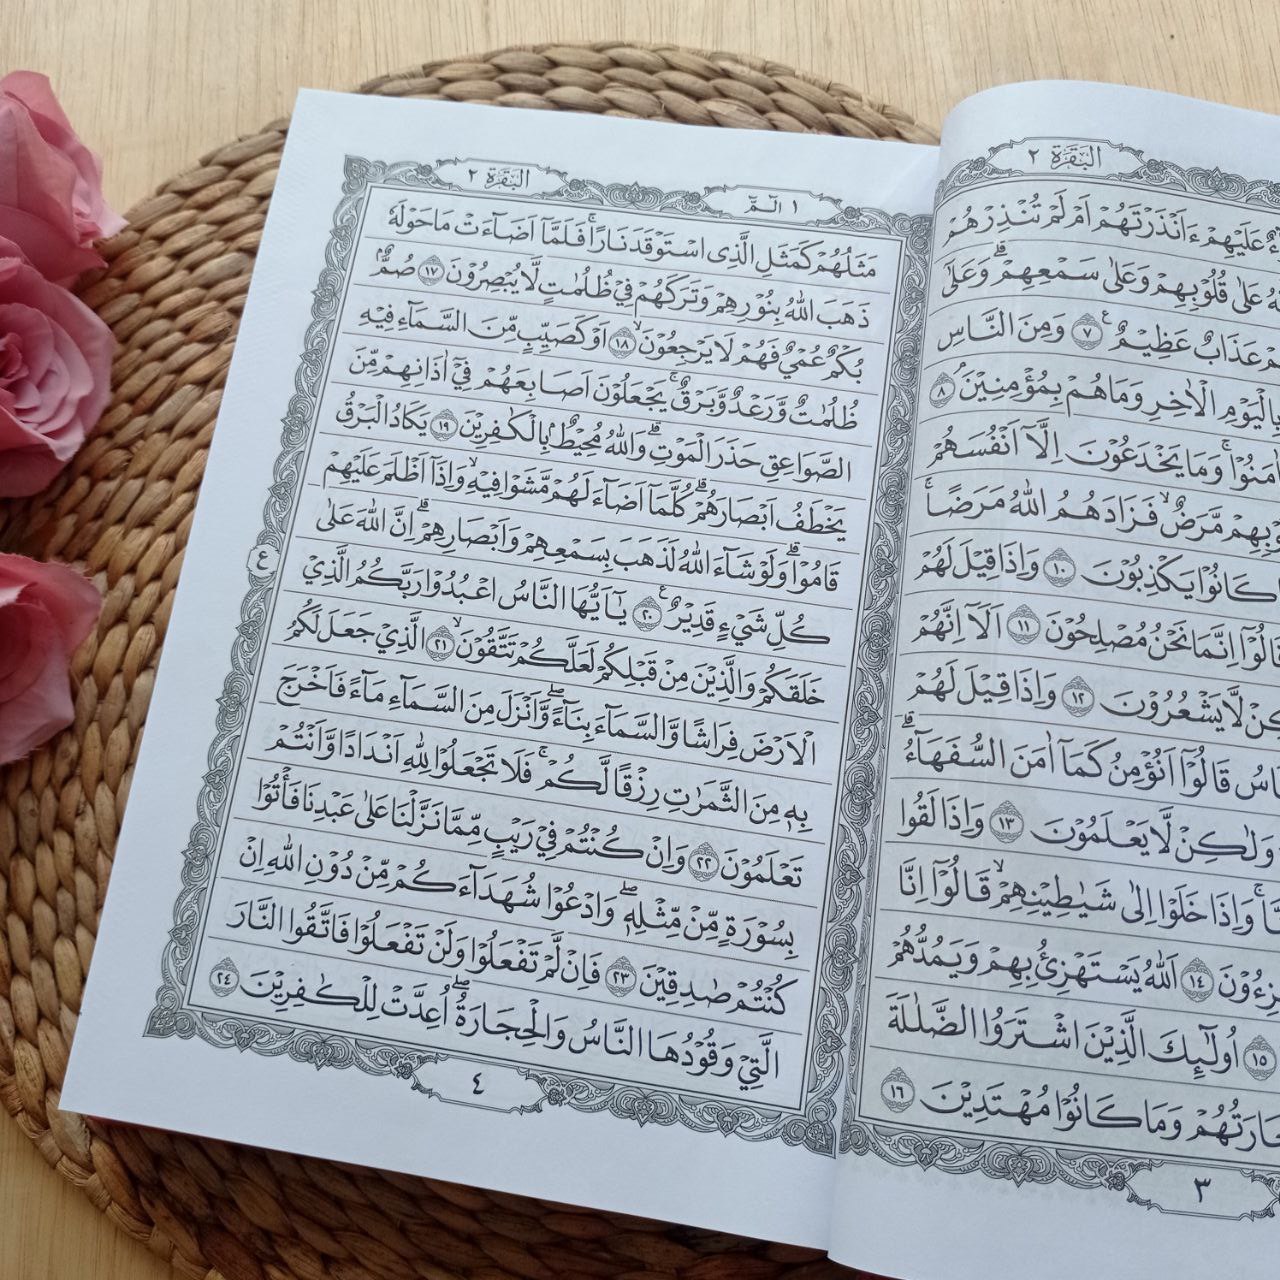 البقرة ٢
عَلَيْهِمْ ءَاَنْذَرْتَهُمْ اَمْ لَمْ تُنْذِرْهُمْ
عَلٰى قُلُوْبِهِمْ وَعَلٰى سَمْعِهِمْۗ وَعَلٰٓى
عَذَابٌ عَظِيْمٌ ࣖ ٧ وَمِنَ النَّاسِ
بِالْيَوْمِ الْاٰخِرِ وَمَا هُمْ بِمُؤْمِنِيْنَۘ ٨
اٰمَنُوْاۚ وَمَا يَخْدَعُوْنَ اِلَّآ اَنْفُسَهُمْ
مَّرَضٌۙ فَزَادَهُمُ اللّٰهُ مَرَضًاۚ
كَانُوْا يَكْذِبُوْنَ ١٠ وَاِذَا قِيْلَ لَهُمْ
قَالُوْٓا اِنَّمَا نَحْنُ مُصْلِحُوْنَ ١١ اَلَآ اِنَّهُمْ
لَّا يَشْعُرُوْنَ ١٢ وَاِذَا قِيْلَ لَهُمْ
قَالُوْٓا اَنُؤْمِنُ كَمَآ اٰمَنَ السُّفَهَاۤءُۗ
وَلٰكِنْ لَّا يَعْلَمُوْنَ ١٣ وَاِذَا لَقُوا
وَاِذَا خَلَوْا اِلٰى شَيٰطِيْنِهِمْۙ قَالُوْٓا اِنَّا
١٤ اَللّٰهُ يَسْتَهْزِئُ بِهِمْ وَيَمُدُّهُمْ
١٥ اُولٰۤىِٕكَ الَّذِيْنَ اشْتَرَوُا الضَّلٰلَةَ
وَمَا كَانُوْا مُهْتَدِيْنَ ١٦
٣
١ الۤمّۤ
البقرة ٢
مَثَلُهُمْ كَمَثَلِ الَّذِى اسْتَوْقَدَ نَارًاۚ فَلَمَّآ اَضَاۤءَتْ مَا حَوْلَهٗ
ذَهَبَ اللّٰهُ بِنُوْرِهِمْ وَتَرَكَهُمْ فِيْ ظُلُمٰتٍ لَّا يُبْصِرُوْنَ ١٧ صُمٌّۢ
بُكْمٌ عُمْيٌ فَهُمْ لَا يَرْجِعُوْنَۙ ١٨ اَوْ كَصَيِّبٍ مِّنَ السَّمَاۤءِ فِيْهِ
ظُلُمٰتٌ وَّرَعْدٌ وَّبَرْقٌۚ يَجْعَلُوْنَ اَصَابِعَهُمْ فِيْٓ اٰذَانِهِمْ مِّنَ
الصَّوَاعِقِ حَذَرَ الْمَوْتِۗ وَاللّٰهُ مُحِيْطٌۢ بِالْكٰفِرِيْنَ ١٩ يَكَادُ الْبَرْقُ
يَخْطَفُ اَبْصَارَهُمْۗ كُلَّمَآ اَضَاۤءَ لَهُمْ مَّشَوْا فِيْهِۙ وَاِذَآ اَظْلَمَ عَلَيْهِمْ
قَامُوْاۗ وَلَوْ شَاۤءَ اللّٰهُ لَذَهَبَ بِسَمْعِهِمْ وَاَبْصَارِهِمْۗ اِنَّ اللّٰهَ عَلٰى
ع
كُلِّ شَيْءٍ قَدِيْرٌ ࣖ ٢٠ يٰٓاَيُّهَا النَّاسُ اعْبُدُوْا رَبَّكُمُ الَّذِيْ
خَلَقَكُمْ وَالَّذِيْنَ مِنْ قَبْلِكُمْ لَعَلَّكُمْ تَتَّقُوْنَۙ ٢١ الَّذِيْ جَعَلَ لَكُمُ
الْاَرْضَ فِرَاشًا وَّالسَّمَاۤءَ بِنَاۤءًۖ وَّاَنْزَلَ مِنَ السَّمَاۤءِ مَاۤءً فَاَخْرَجَ
بِهٖ مِنَ الثَّمَرٰتِ رِزْقًا لَّكُمْۚ فَلَا تَجْعَلُوْا لِلّٰهِ اَنْدَادًا وَّاَنْتُمْ
تَعْلَمُوْنَ ٢٢ وَاِنْ كُنْتُمْ فِيْ رَيْبٍ مِّمَّا نَزَّلْنَا عَلٰى عَبْدِنَا فَأْتُوْا
بِسُوْرَةٍ مِّنْ مِّثْلِهٖۖ وَادْعُوْا شُهَدَاۤءَكُمْ مِّنْ دُوْنِ اللّٰهِ اِنْ
كُنْتُمْ صٰدِقِيْنَ ٢٣ فَاِنْ لَّمْ تَفْعَلُوْا وَلَنْ تَفْعَلُوْا فَاتَّقُوا النَّارَ
الَّتِيْ وَقُوْدُهَا النَّاسُ وَالْحِجَارَةُۖ اُعِدَّتْ لِلْكٰفِرِيْنَ ٢٤
٤